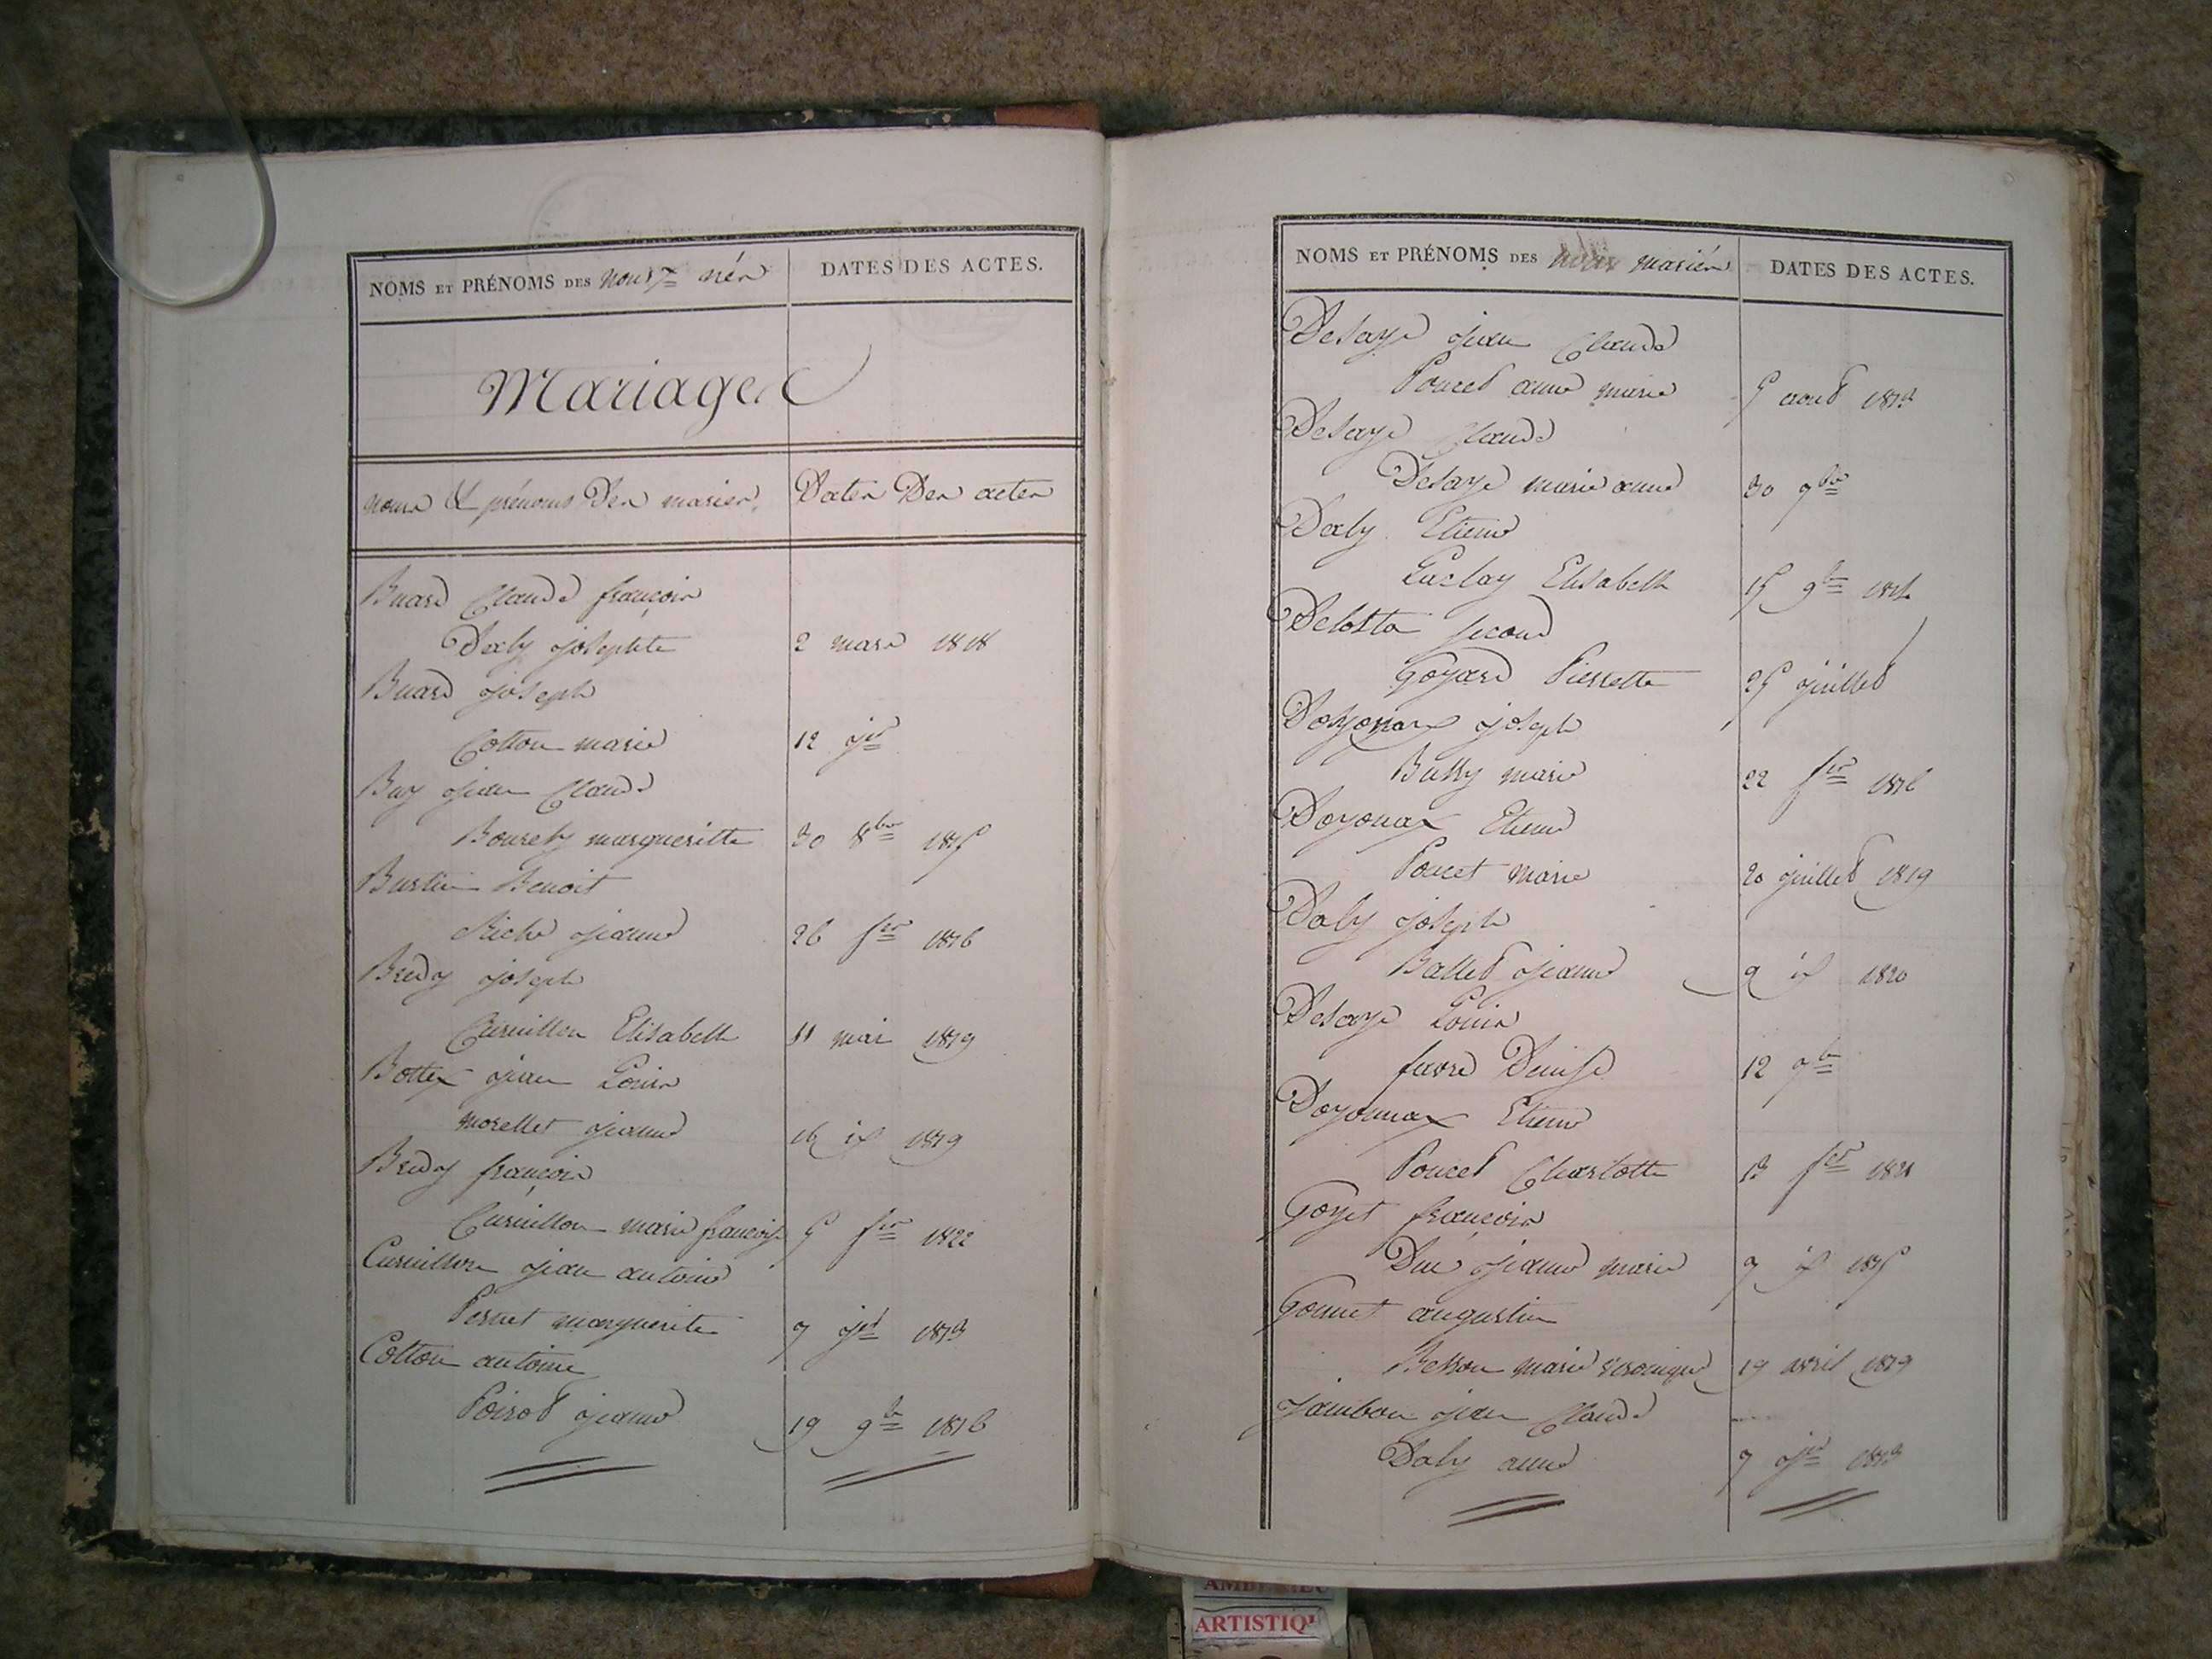 NOMS ET PRÉNOMS DES nouv.x nés
DATES DES ACTES.
Mariages
noms & prénoms Des mariés,
Dates Des actes
Buard Claude françois
Daly josephte 2 mars 1818
Buard joseph
Cotton marie 12 jer
Buy jean Claude
Bourety margueritte 30 8bre 1815
Bustin Benoit
Riche jeanne 26 fer 1816
Bredy joseph
Curvillon Elisabeth 11 mai 1819
Bottex jean Louis
morellet jeanne 16 id 1819
Bredy françois
Curvillon marie françoise 5 fer 1822
Curvillon jean antoine
Pernet marguerite 7 jer 1813
Cotton antoine
Poirod jeanne 19 9bre 1816
NOMS ET PRÉNOMS DES mariés
DATES DES ACTES.
Desaye jean Claude
Poncet anne marie 5 aout
Desaye Claude
Desaye marie anne 30 9bre
Daly Etiene
Luclay Elisabeth 15 9bre 1814
Delotta second
Goyard Pierrette 25 juillet
Doyonax joseph
Bussy marie 22 fer 1816
Doyonax Etiene
Poncet marie 20 juillet 1819
Daly joseph
Ballet jeanne 9 id 1820
Desaye Louis
favre Denise 12 9bre
Doyonnax Etiene
Poncet Charlotte 13 fer 1821
Goyet françois
Duc jeanne marie 7 id 1815
Gonnet augustin
Besson marie veronique 19 avril 1819
Jambon jean Claude
Daly anne 7 jer 1813
ARTISTIQ